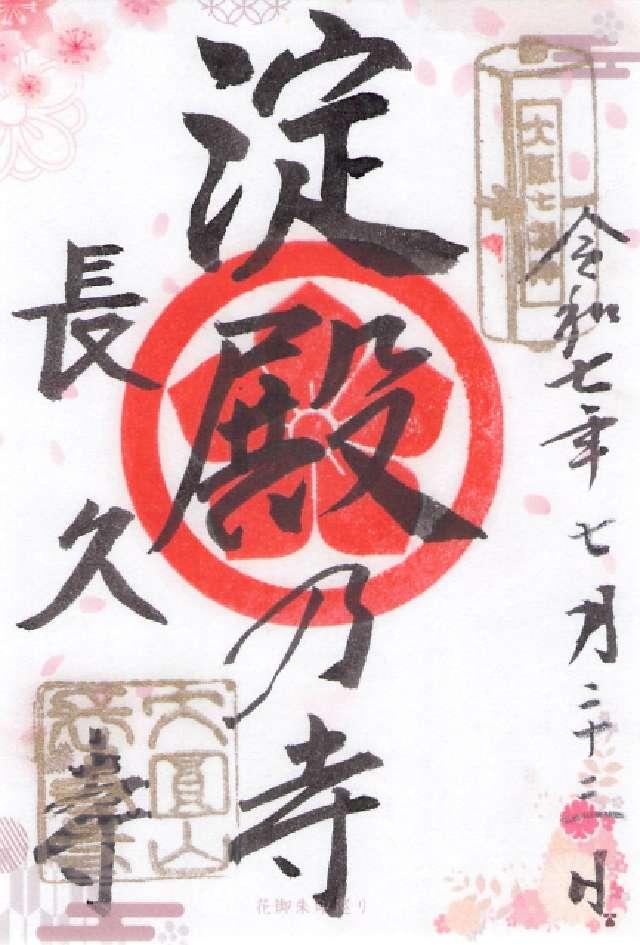 令和七年七月二十二日
大阪七福神
淀殿乃寺
長久寺
大圓山
長久寺
花御朱印巡り